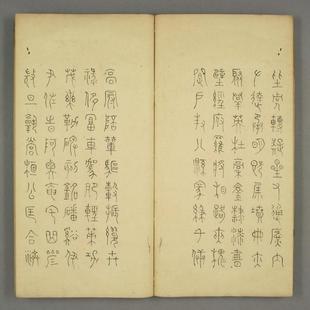 陛弁轉疑星右通廣內
左達承明既集墳典亦
聚群英杜稿鍾隸漆書
壁經府羅將相路俠槐
卿戶封八縣家給千兵
高冠陪輦驅轂振纓世
祿侈富車駕肥輕策功
茂實勒碑刻銘磻溪伊
尹佐時阿衡奄宅曲阜
微旦孰營桓公匡合濟